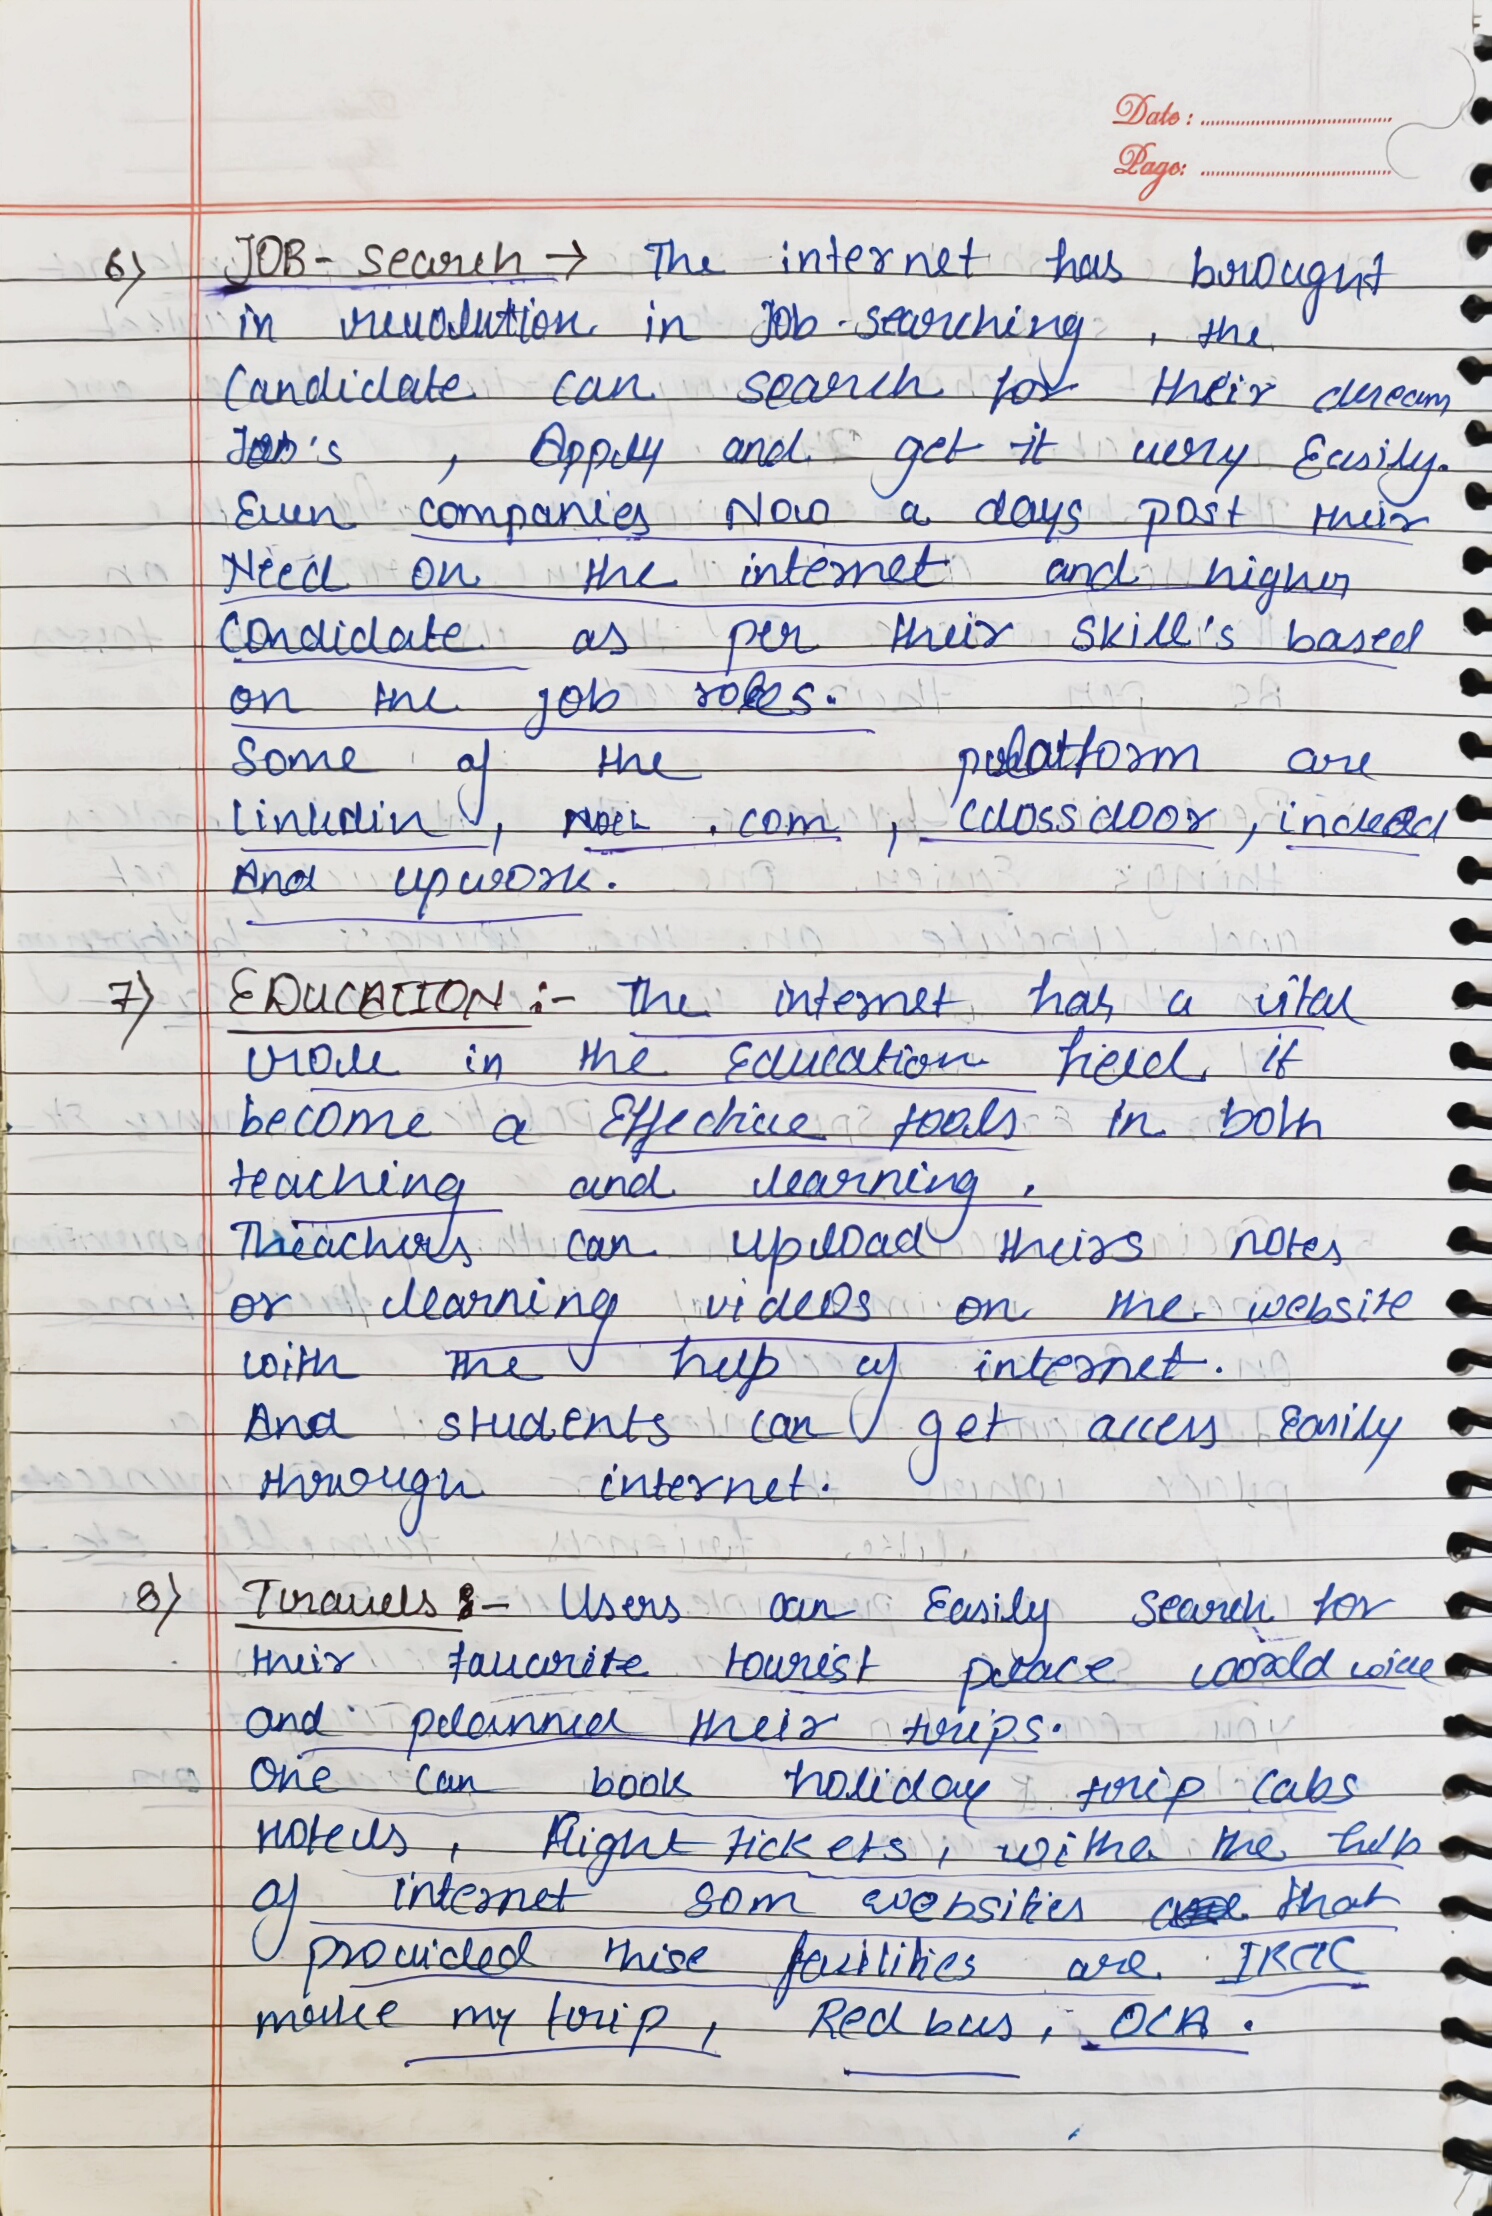 Date :
Page:
6) JOB- Search → The internet has brought
in revolution in Job-searching, the
Candidate can search for their dream
Job's , Apply and get it very Easily.
Even companies Now a days post their
Need on the internet and higher
Candidate as per their skill's based
on the job roles.
Some of the platform are
linkdin, .com, Glossdoor, indeed
And upwork.
7) EDUCATION :- The internet has a vital
role in the Education field it
become a Effective tools in both
teaching and learning.
Theachers can upload theirs notes
or learning videos on the website
with the help of internet.
And students can get access Easily
through internet.
8) Travels :- Users can Easily Search for
their favourite tourist place world wide
and planned their trips.
One can book holiday trip cabs
hotels, flight tickets, withe the help
of internet som websities that
provided thise facilities are IRCTC
make my trip, Red bus, OLA.